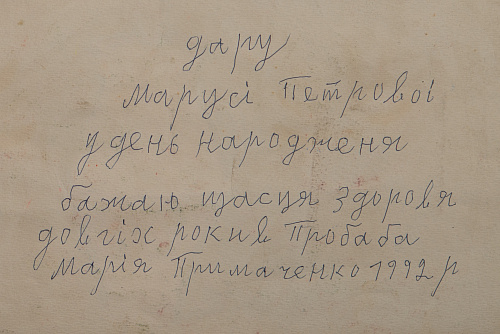 дару
Марусі Петровоі
у день народженя
бажаю щасця здоровя
довгіх рокив Пробаба
Марія Примаченко 1992 р